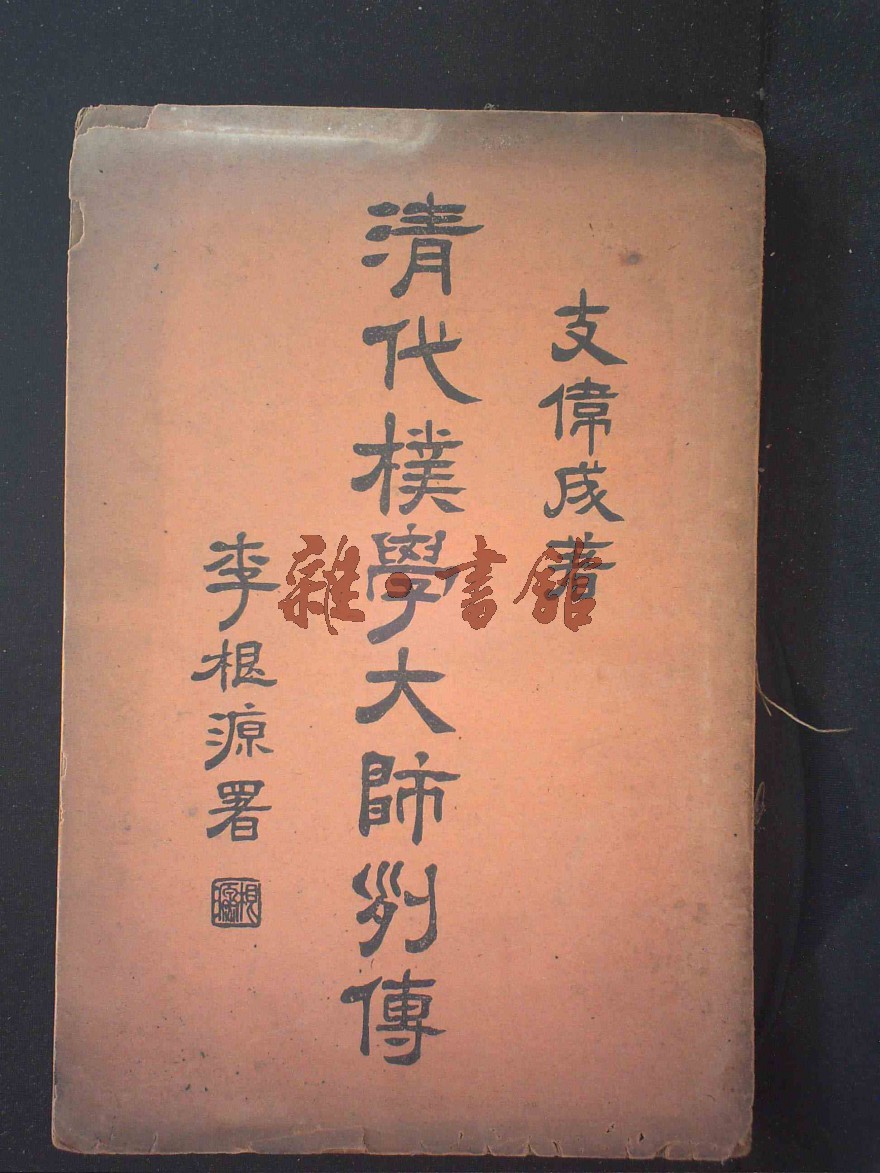 支偉成著
清代樸學大師列傳
李根源署
根源
雜·書館